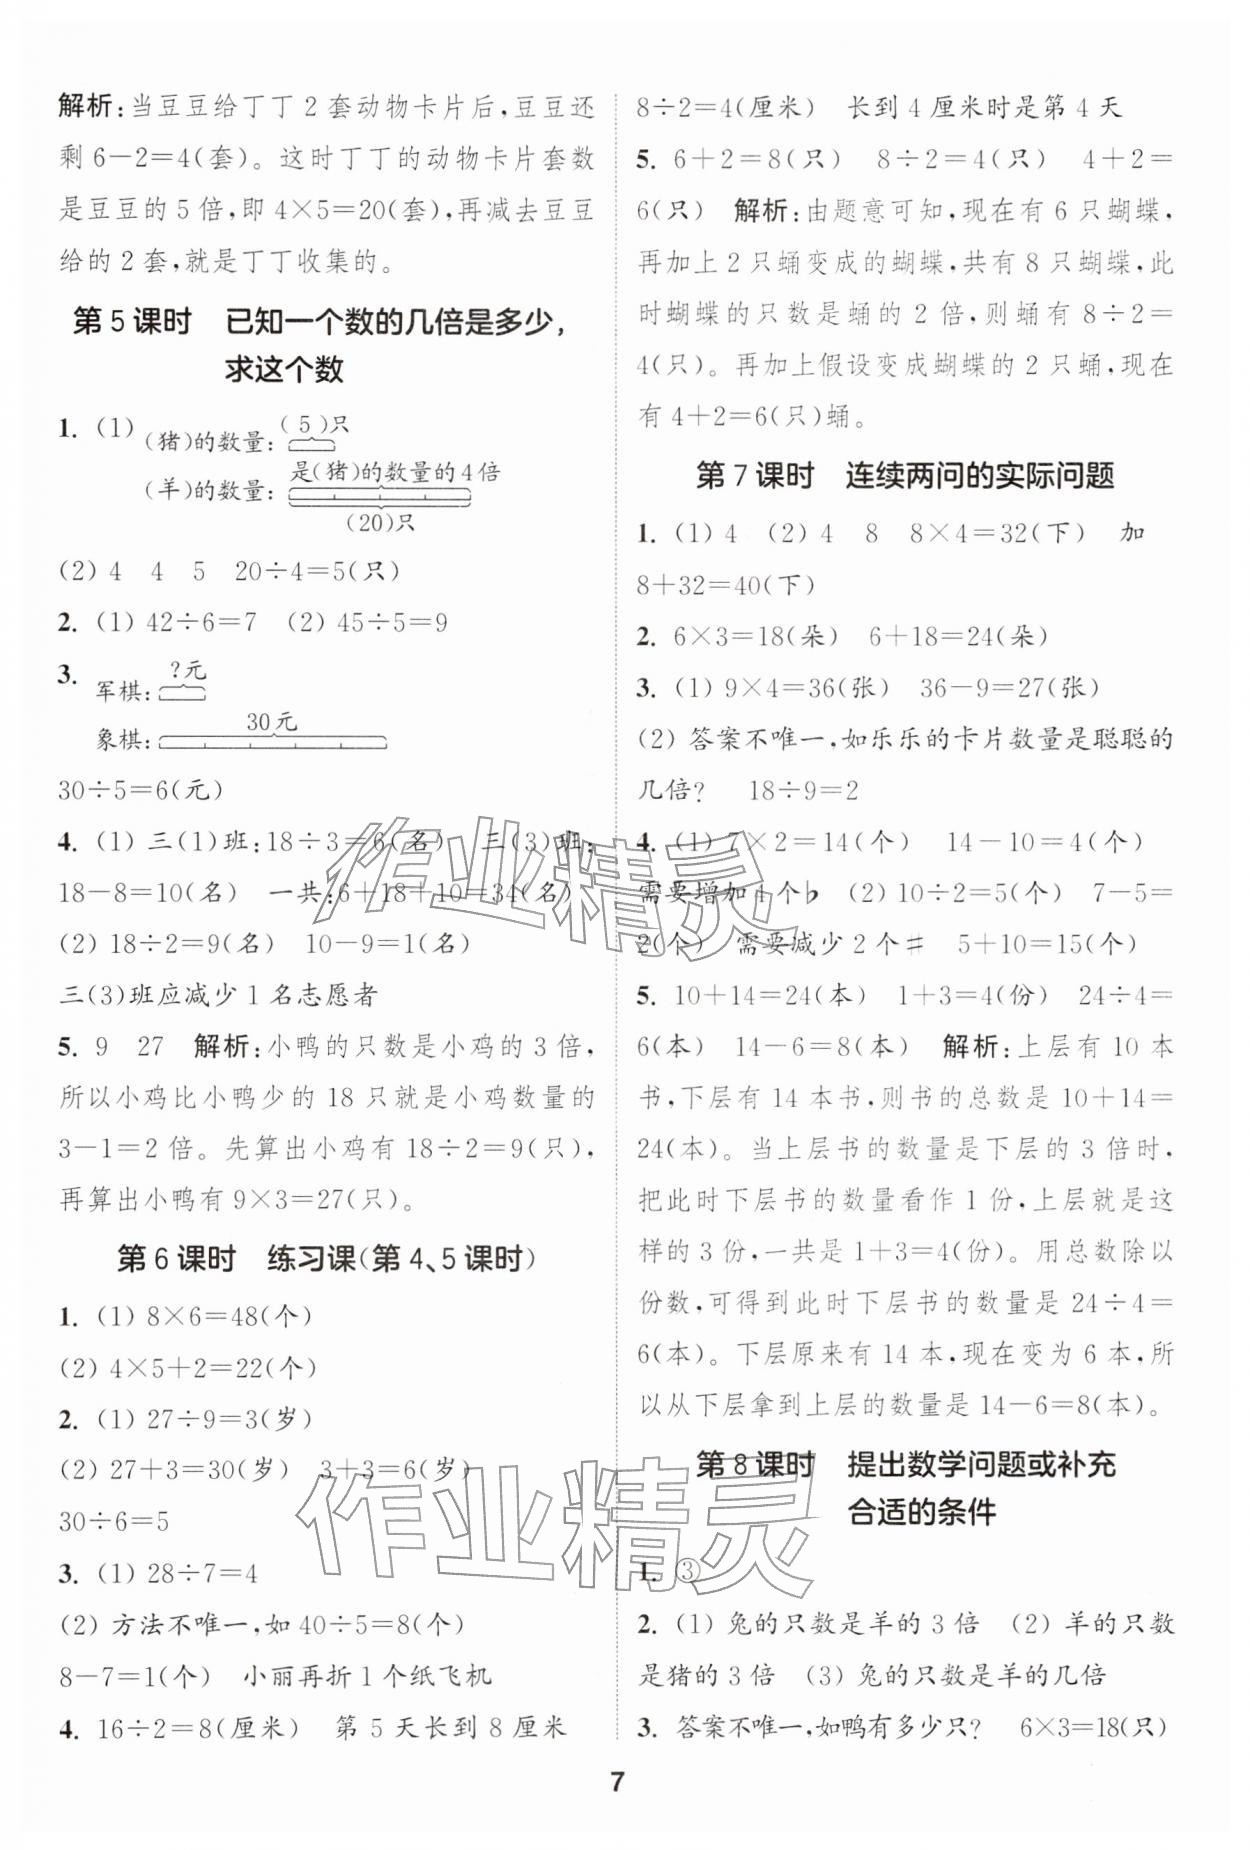 解析:当豆豆给丁丁2套动物卡片后,豆豆还
剩6-2=4(套)。这时丁丁的动物卡片套数
是豆豆的5倍,即4×5=20(套),再减去豆豆
给的2套,就是丁丁收集的。
第5课时 已知一个数的几倍是多少,
求这个数
1. (1) (猪)的数量: (5)只
是(猪)的数量的4倍
(羊)的数量:
(20)只
(2) 4 4 5 20÷4=5(只)
2. (1) 42÷6=7 (2) 45÷5=9
3. 军棋: ?元
30元
象棋:
30÷5=6(元)
4. (1) 三(1)班:18÷3=6(名) 三(3)班:
18-8=10(名) 一共:6+18+10=34(名)
(2) 18÷2=9(名) 10-9=1(名)
三(3)班应减少1名志愿者
5. 9 27 解析:小鸭的只数是小鸡的3倍,
所以小鸡比小鸭少的18只就是小鸡数量的
3-1=2倍。先算出小鸡有18÷2=9(只),
再算出小鸭有9×3=27(只)。
第6课时 练习课(第4、5课时)
1. (1) 8×6=48(个)
(2) 4×5+2=22(个)
2. (1) 27÷9=3(岁)
(2) 27+3=30(岁) 3+3=6(岁)
30÷6=5
3. (1) 28÷7=4
(2) 方法不唯一,如40÷5=8(个)
8-7=1(个) 小丽再折1个纸飞机
4. 16÷2=8(厘米) 第5天长到8厘米
8÷2=4(厘米) 长到4厘米时是第4天
5. 6+2=8(只) 8÷2=4(只) 4+2=
6(只) 解析:由题意可知,现在有6只蝴蝶,
再加上2只蛹变成的蝴蝶,共有8只蝴蝶,此
时蝴蝶的只数是蛹的2倍,则蛹有8÷2=
4(只)。再加上假设变成蝴蝶的2只蛹,现在
有4+2=6(只)蛹。
第7课时 连续两问的实际问题
1. (1) 4 (2) 4 8 8×4=32(下) 加
8+32=40(下)
2. 6×3=18(朵) 6+18=24(朵)
3. (1) 9×4=36(张) 36-9=27(张)
(2) 答案不唯一,如乐乐的卡片数量是聪聪的
几倍? 18÷9=2
4. (1) 7×2=14(个) 14-10=4(个)
需要增加4个♭ (2) 10÷2=5(个) 7-5=
2(个) 需要减少2个♯ 5+10=15(个)
5. 10+14=24(本) 1+3=4(份) 24÷4=
6(本) 14-6=8(本) 解析:上层有10本
书,下层有14本书,则书的总数是10+14=
24(本)。当上层书的数量是下层的3倍时,
把此时下层书的数量看作1份,上层就是这
样的3份,一共是1+3=4(份)。用总数除以
份数,可得到此时下层书的数量是24÷4=
6(本)。下层原来有14本,现在变为6本,所
以从下层拿到上层的数量是14-6=8(本)。
第8课时 提出数学问题或补充
合适的条件
1. ③
2. (1) 兔的只数是羊的3倍 (2) 羊的只数
是猪的3倍 (3) 兔的只数是羊的几倍
3. 答案不唯一,如鸭有多少只? 6×3=18(只)
7
作业精灵
作业精灵